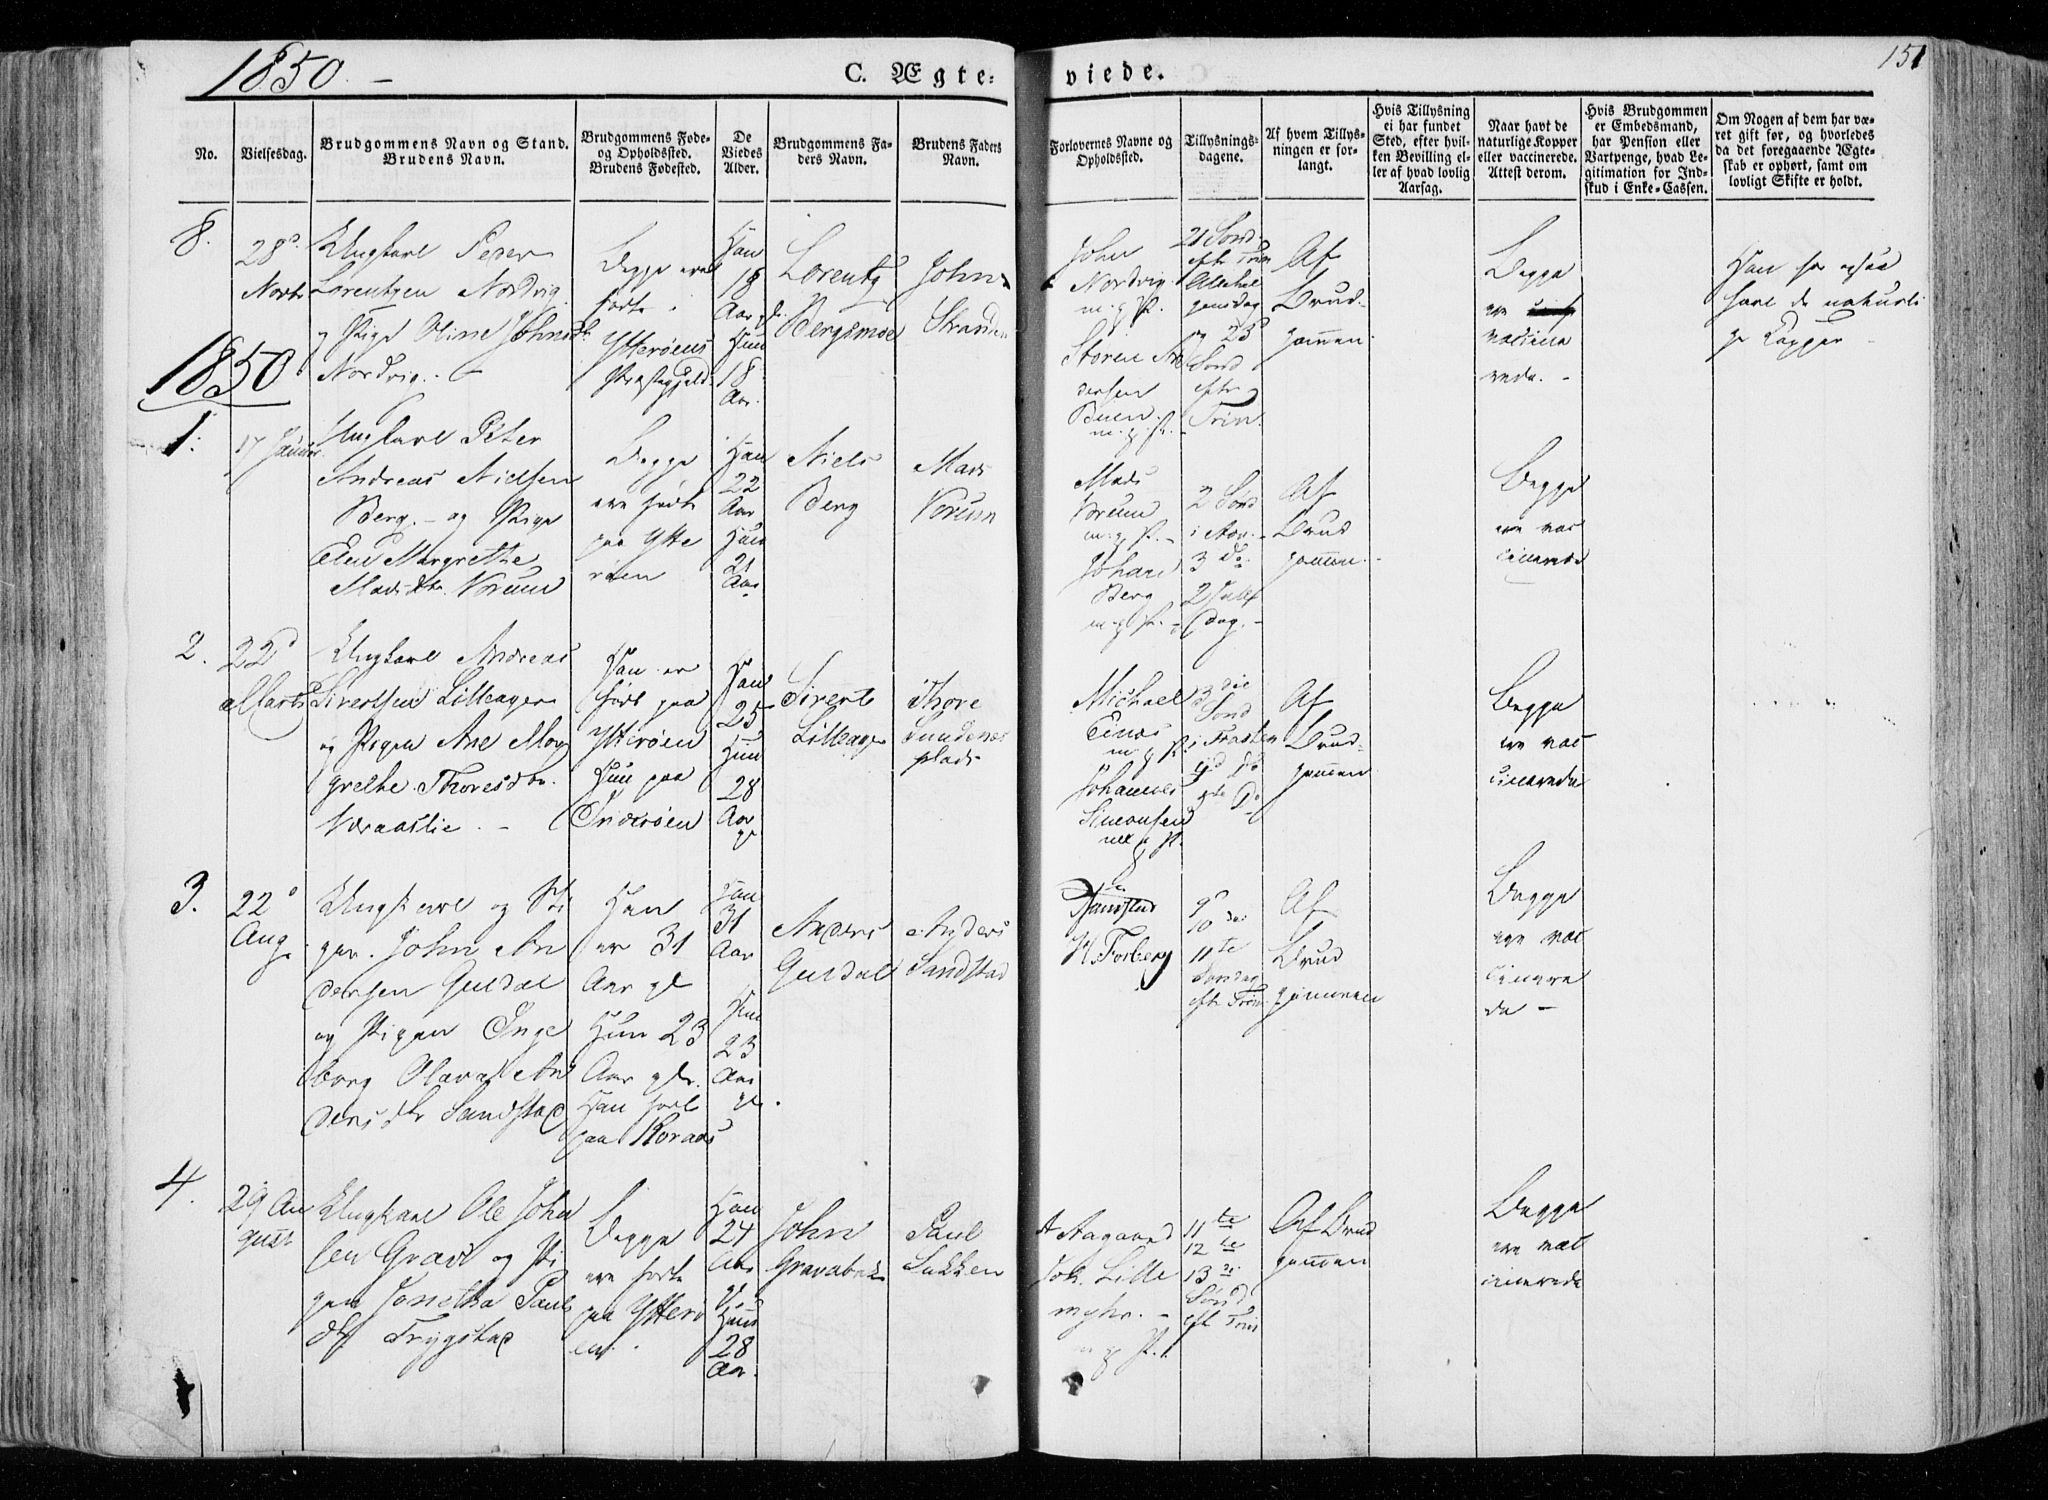 1850. –
C. Ægte=
viede.
151
No.
Vielsesdag.
Brudgommens Navn og Stand.
Brudens Navn.
Brudgommens Føde-
og Opholdssted.
Brudens Fødested.
De
Viedes
Alder.
Brudgommens Fa-
ders Navn.
Brudens Faders
Navn.
Forlovernes Navne og
Opholdssted.
Tillysnings-
dagene.
Af hvem Tillys-
ningen er for-
langt.
Hvis Tillysning
ei har fundet
Sted, efter hvil-
ken Bevilling el-
ler af hvad lovlig
Aarsag.
Naar havt de
naturlige Kopper
eller vaccinerede.
Attest derom.
Hvis Brudgommen
er Embedsmand,
har Pension eller
Vartpenge, hvad Le-
gitimation for Ind-
skud i Enke-Cassen.
Om Nogen af dem har væ-
ret gift før, og hvorledes
da det foregaaende Ægte-
skab er ophørt, samt om
lovligt Skifte er holdt.
8.
28
Ungkarl Peder
Lorentzen Nordvig
og Pige Oline Johnsdtr.
Nordvig.
Begge ere
fødte
Ytterøens
Præstegjeld
Han
18
Aar gl.
Hun
18
Aar.
Lorentz
Bergsmoe
John
Stranden
John
Nordvig
m. g. P.
Andersen
Buen.
m. g. P.
21 Sønd
efter Trin
og 23
Sønd
efter
Trin.
Af
Brud-
gommen.
Begge
ere
vaccine
rede. –
Han har ogsaa
havt de naturli
ge Kopper
1850
1.
17 Januar
Ungkarl Peter
Andreas Nielsen
Berg. – og Pige
Elen Margrethe
Madsdtr. Vorum
Begge
ere fødte
paa Ytte
røen
Han
22
Aar
Hun
21
Aar
Niels
Berg
Mads
Vorum
Mads
Vorum
m. g. P. –
Johan
Berg
m. g. P. –
2 Sønd
i Adv. –
3 do.
2 Jule
dag. –
Af
Brud
gommen. –
Begge
ere vac
cinerede
2.
22
Marts
Ungkarl Andreas
Sivertsen Lilleager
og Pigen Ane Mar
grethe Thoresdtr.
Vdraaslie. –
Han er
født paa
Ytterøen
Hun paa
Inderøen
Han
25
Hun
28
Aar
gl
Sivert
Lilleager
Thore
Sundnes
plads
Michael
Einas
m. g. P.
Johannes
Simonsen
m. g. P.
3die
Sønd
i Fasten
4de do
5te do
Af
Brud-
gommen
Begge
ere vac
cinerede
3.
22
Aug.
Ungkarl og
John An
dersen Guldal
og Pigen Inge
borg Olava An
dersdtr Sandstad
Han
er 31
Aar gl
Hun 23
Aar gl.
Han født
paa Koraas
Han
31
Aar
Hun
23
Aar
gl.
Anders
Guldal
Anders
Sandstad
Sandstad
H. Forberg
9
10de
11te
Søndag
eft Trin.
Af
Brud
gommen
Begge
ere vac
cinere
de –
4.
29 Au
gust
Ungkarl Ole John
sen Grav og Pi
gen Jonetha Pauls
dtr Trygstad
Begge
ere fødte
paa Ytterø
en.
Han
24
Aar
gl.
Hun
28
Aar.
John
Gravabak
Paul
Bakken
A Aagaard
Joh. Lille
myhr. –
m. g. P.
11te
12te
13de
Sønd
eft Trin
Af Brud
gommen
Begge
ere vac
cinerede